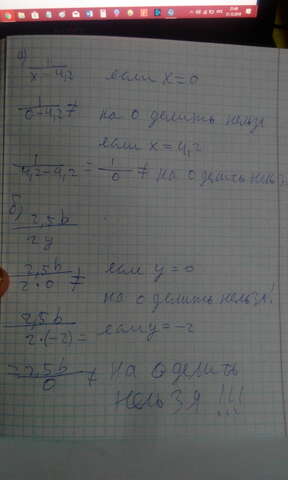 а) 1/(x - 4,2) если x = 0
1/(0 - 4,2) ≠ на 0 делить нельзя
если x = 4,2
1/(4,2 - 4,2) = 1/0 ≠ на 0 делить нельзя
б) 2,5b/2y
2,5b/(2·0) ≠ если y = 0
на 0 делить нельзя!
2,5b/(2·(-2)) = если y = -2
2,5b/0 ≠ на 0 делить
нельзя !!!